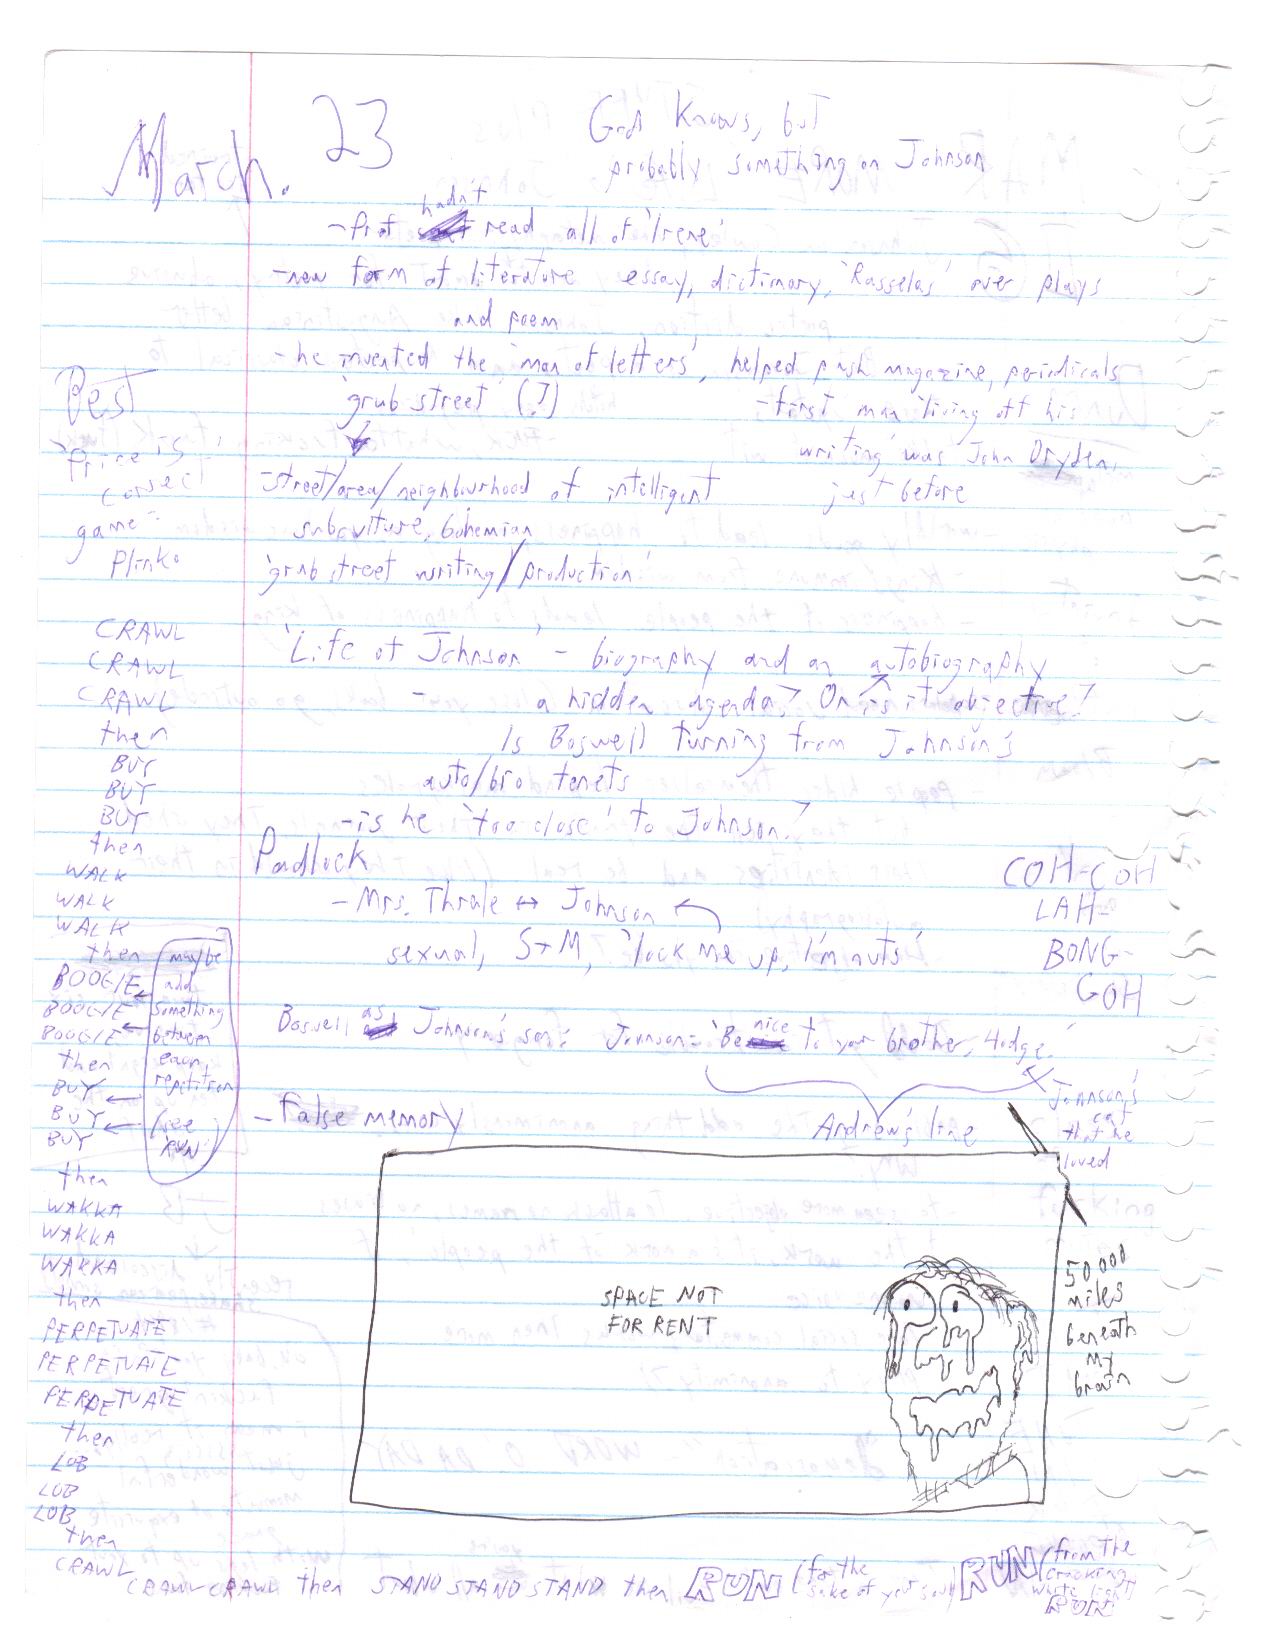 March. 23
God Knows, but
probably something on Johnson
hadn't
-Prof read all of 'Irene'
-new form of literature essay, dictionary, 'Rasselas' over plays
and poem
-he invented the 'man of letters', helped push magazine, periodicals
'grub street' (?)
-first man 'living off his
writing' was John Dryden,
just before
-street/area/neighbourhood of intelligent
subculture, bohemian
'grub street writing/production'
Best
'Price is
Correct'
game:
Plinko
'Life of Johnson' - biography and an autobiography
- a hidden agenda? Or is it objective?
Is Boswell turning from Johnson's
auto/bio tenets
-is he 'too close' to Johnson?
Padlock
-Mrs. Thrale ↔ Johnson
sexual, S+M, 'lock me up, I'm nuts'
COH-COH
LAH-
BONG-
GOH
Boswell as Johnson's son: Johnson = 'Be nice to your brother, Hodge.'
Johnson's
cat
that he
loved
Andrew's line
-False memory
SPACE NOT
FOR RENT
50 000
miles
beneath
my
brain
CRAWL
CRAWL
CRAWL
then
BUY
BUY
BUY
then
WALK
WALK
WALK
then
BOOGIE
BOOGIE
BOOGIE
then
BUY
BUY
BUY
then
WAKKA
WAKKA
WAKKA
then
PERPETUATE
PERPETUATE
PERPETUATE
then
LOB
LOB
LOB
then
CRAWL
CRAWL CRAWL then STAND STAND STAND then RUN (for the
sake of your soul) RUN (from the
cracking
white light)
RUN
maybe
add
something
between
each
repetition
(see
'RUN')